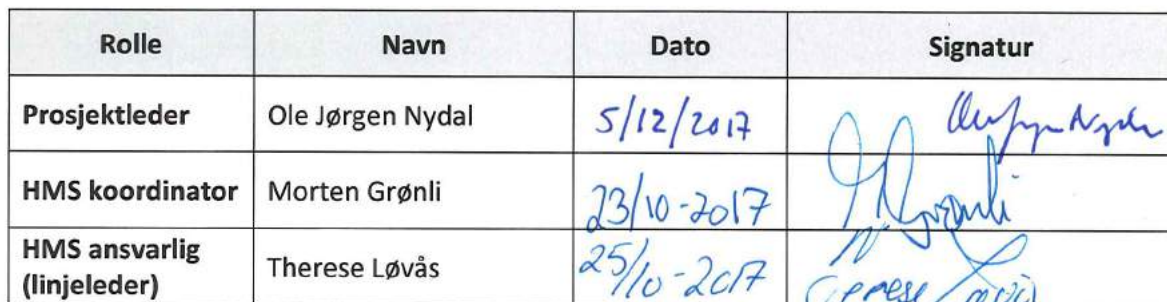 Rolle Navn Dato Signatur
Prosjektleder Ole Jørgen Nydal 5/12/2017
HMS koordinator Morten Grønli 23/10-2017 M Grønli
HMS ansvarlig
(linjeleder) Therese Løvås 25/10-2017 Therese Løvås